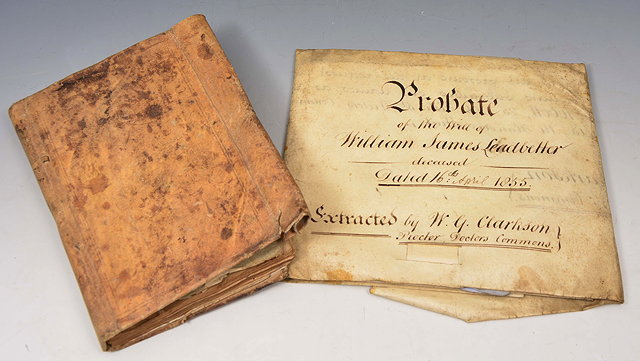 Probate
of the Will of
William James Leadbetter
deceased
Dated 16th April 1855.
Extracted by W. G. Clarkson
Proctor, Doctors Commons.